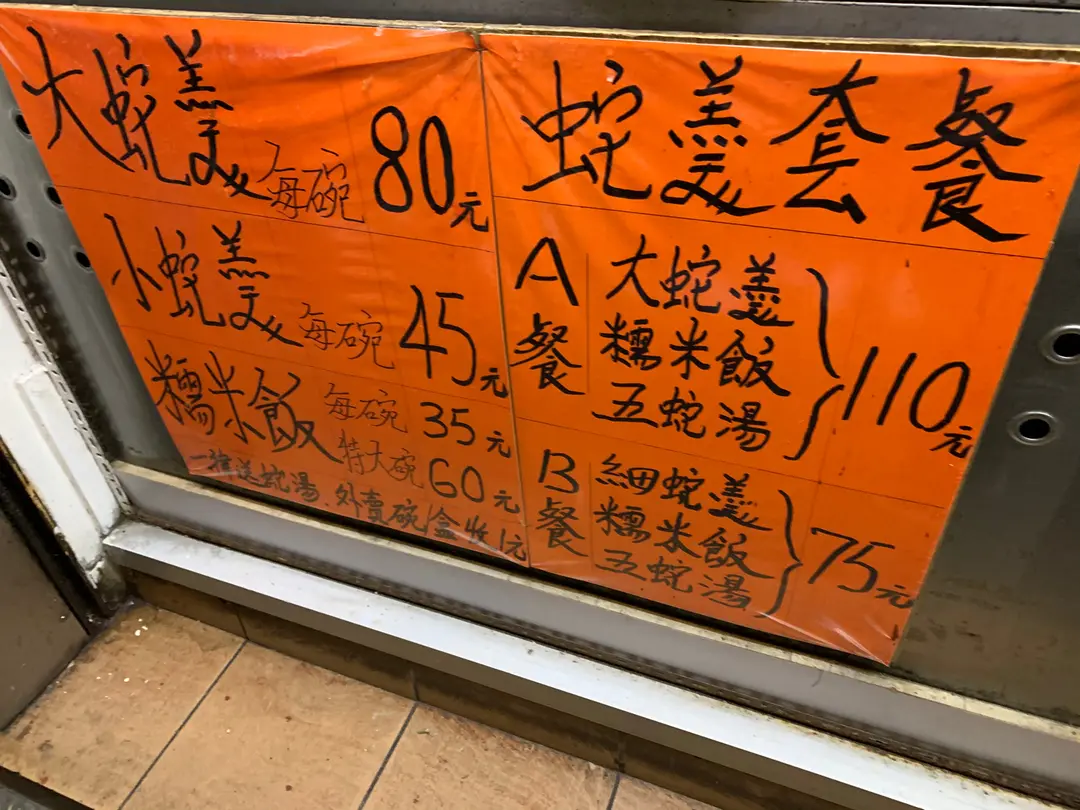 大蛇羹 每碗 80元
小蛇羹 每碗 45元
糯米飯 每碗 35元
特大碗 60元
一律送蛇湯.外賣碗/盒收1元
蛇羹套餐
A餐
大蛇羹
糯米飯
五蛇湯
110元
B餐
細蛇羹
糯米飯
五蛇湯
75元